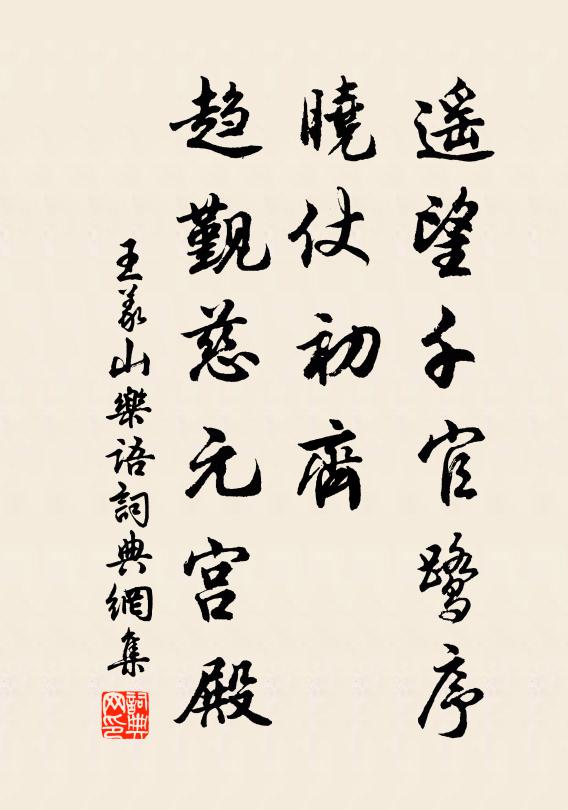 遥望千官鹭序
曉仗初齊
趋觐慈元宫殿
王義山樂語詞典網集
詞典网印